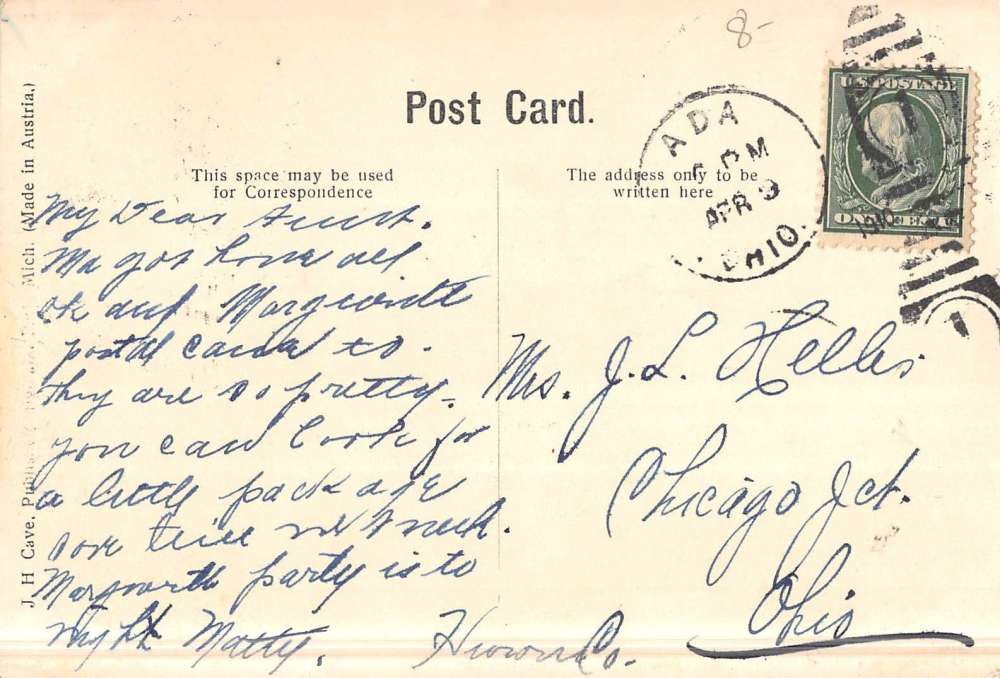 8-
Post Card.
This space may be used
for Correspondence
The address only to be
written here
U.S. POSTAGE
ONE CENT
ADA
PM
APR 9
OHIO
1910
My Dear Aunt.
Ma got home all
ok and Margueritt
postal came to.
they are so pretty.
you can look for
a little package
some time next week.
party is to
night Matty.
Mrs. J. L. Heller
Chicago Jct.
Ohio
Huron Co.
J. H Cave, Mich. (Made in Austria.)